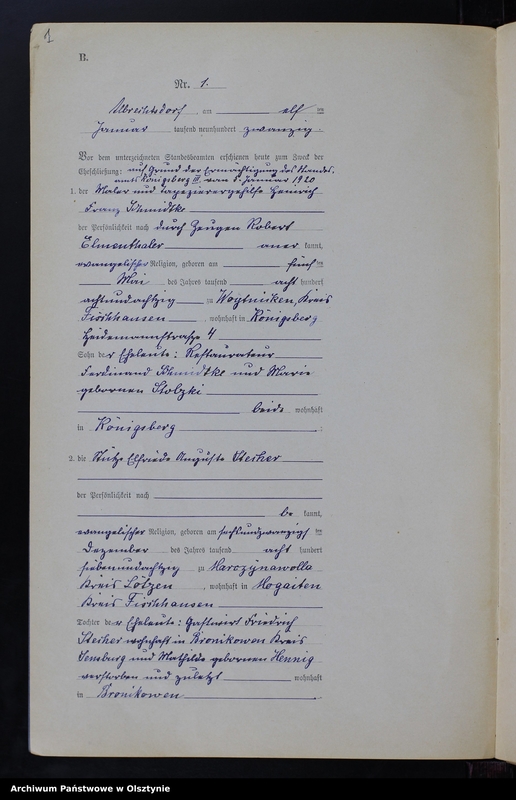 1
B.
Nr. 1.
Albrechtsdorf, am elf ten
Januar tausend neunhundert zwanzig.
Vor dem unterzeichneten Standesbeamten erschienen heute zum Zweck der
Eheschließung: auf Grund der Ermächtigung des Standes-
amts Königsberg III vom 8. Januar 1920
1. der Maler und Tapezierergehilfe Heinrich
Franz Schmidtke
der Persönlichkeit nach durch Zeugen Robert
Elmenthaler aner kannt,
evangelischer Religion, geboren am fünf ten
Mai des Jahres tausend acht hundert
achtundachtzig zu Woytnicken, Kreis
Fischhausen, wohnhaft in Königsberg
Heidemannstraße 4
Sohn der Eheleute: Restaurateur
Ferdinand Schmidtke und Marie
gebornen Stolzki
beide wohnhaft
in Königsberg
2. die Stütze Elfriede Auguste Stecher
der Persönlichkeit nach
be kannt,
evangelischer Religion, geboren am sechsundzwanzigs ten
Dezember des Jahres tausend acht hundert
siebenundachtzig zu Marczynawolla
Kreis Lötzen, wohnhaft in Mogaiten
Kreis Fischhausen
Tochter der Eheleute: Gastwirt Friedrich
Stecher wohnhaft in Bronikowen Kreis
Sensburg und Mathilde gebornen Hennig
verstorben und zuletzt wohnhaft
in Bronikowen.
Archiwum Państwowe w Olsztynie